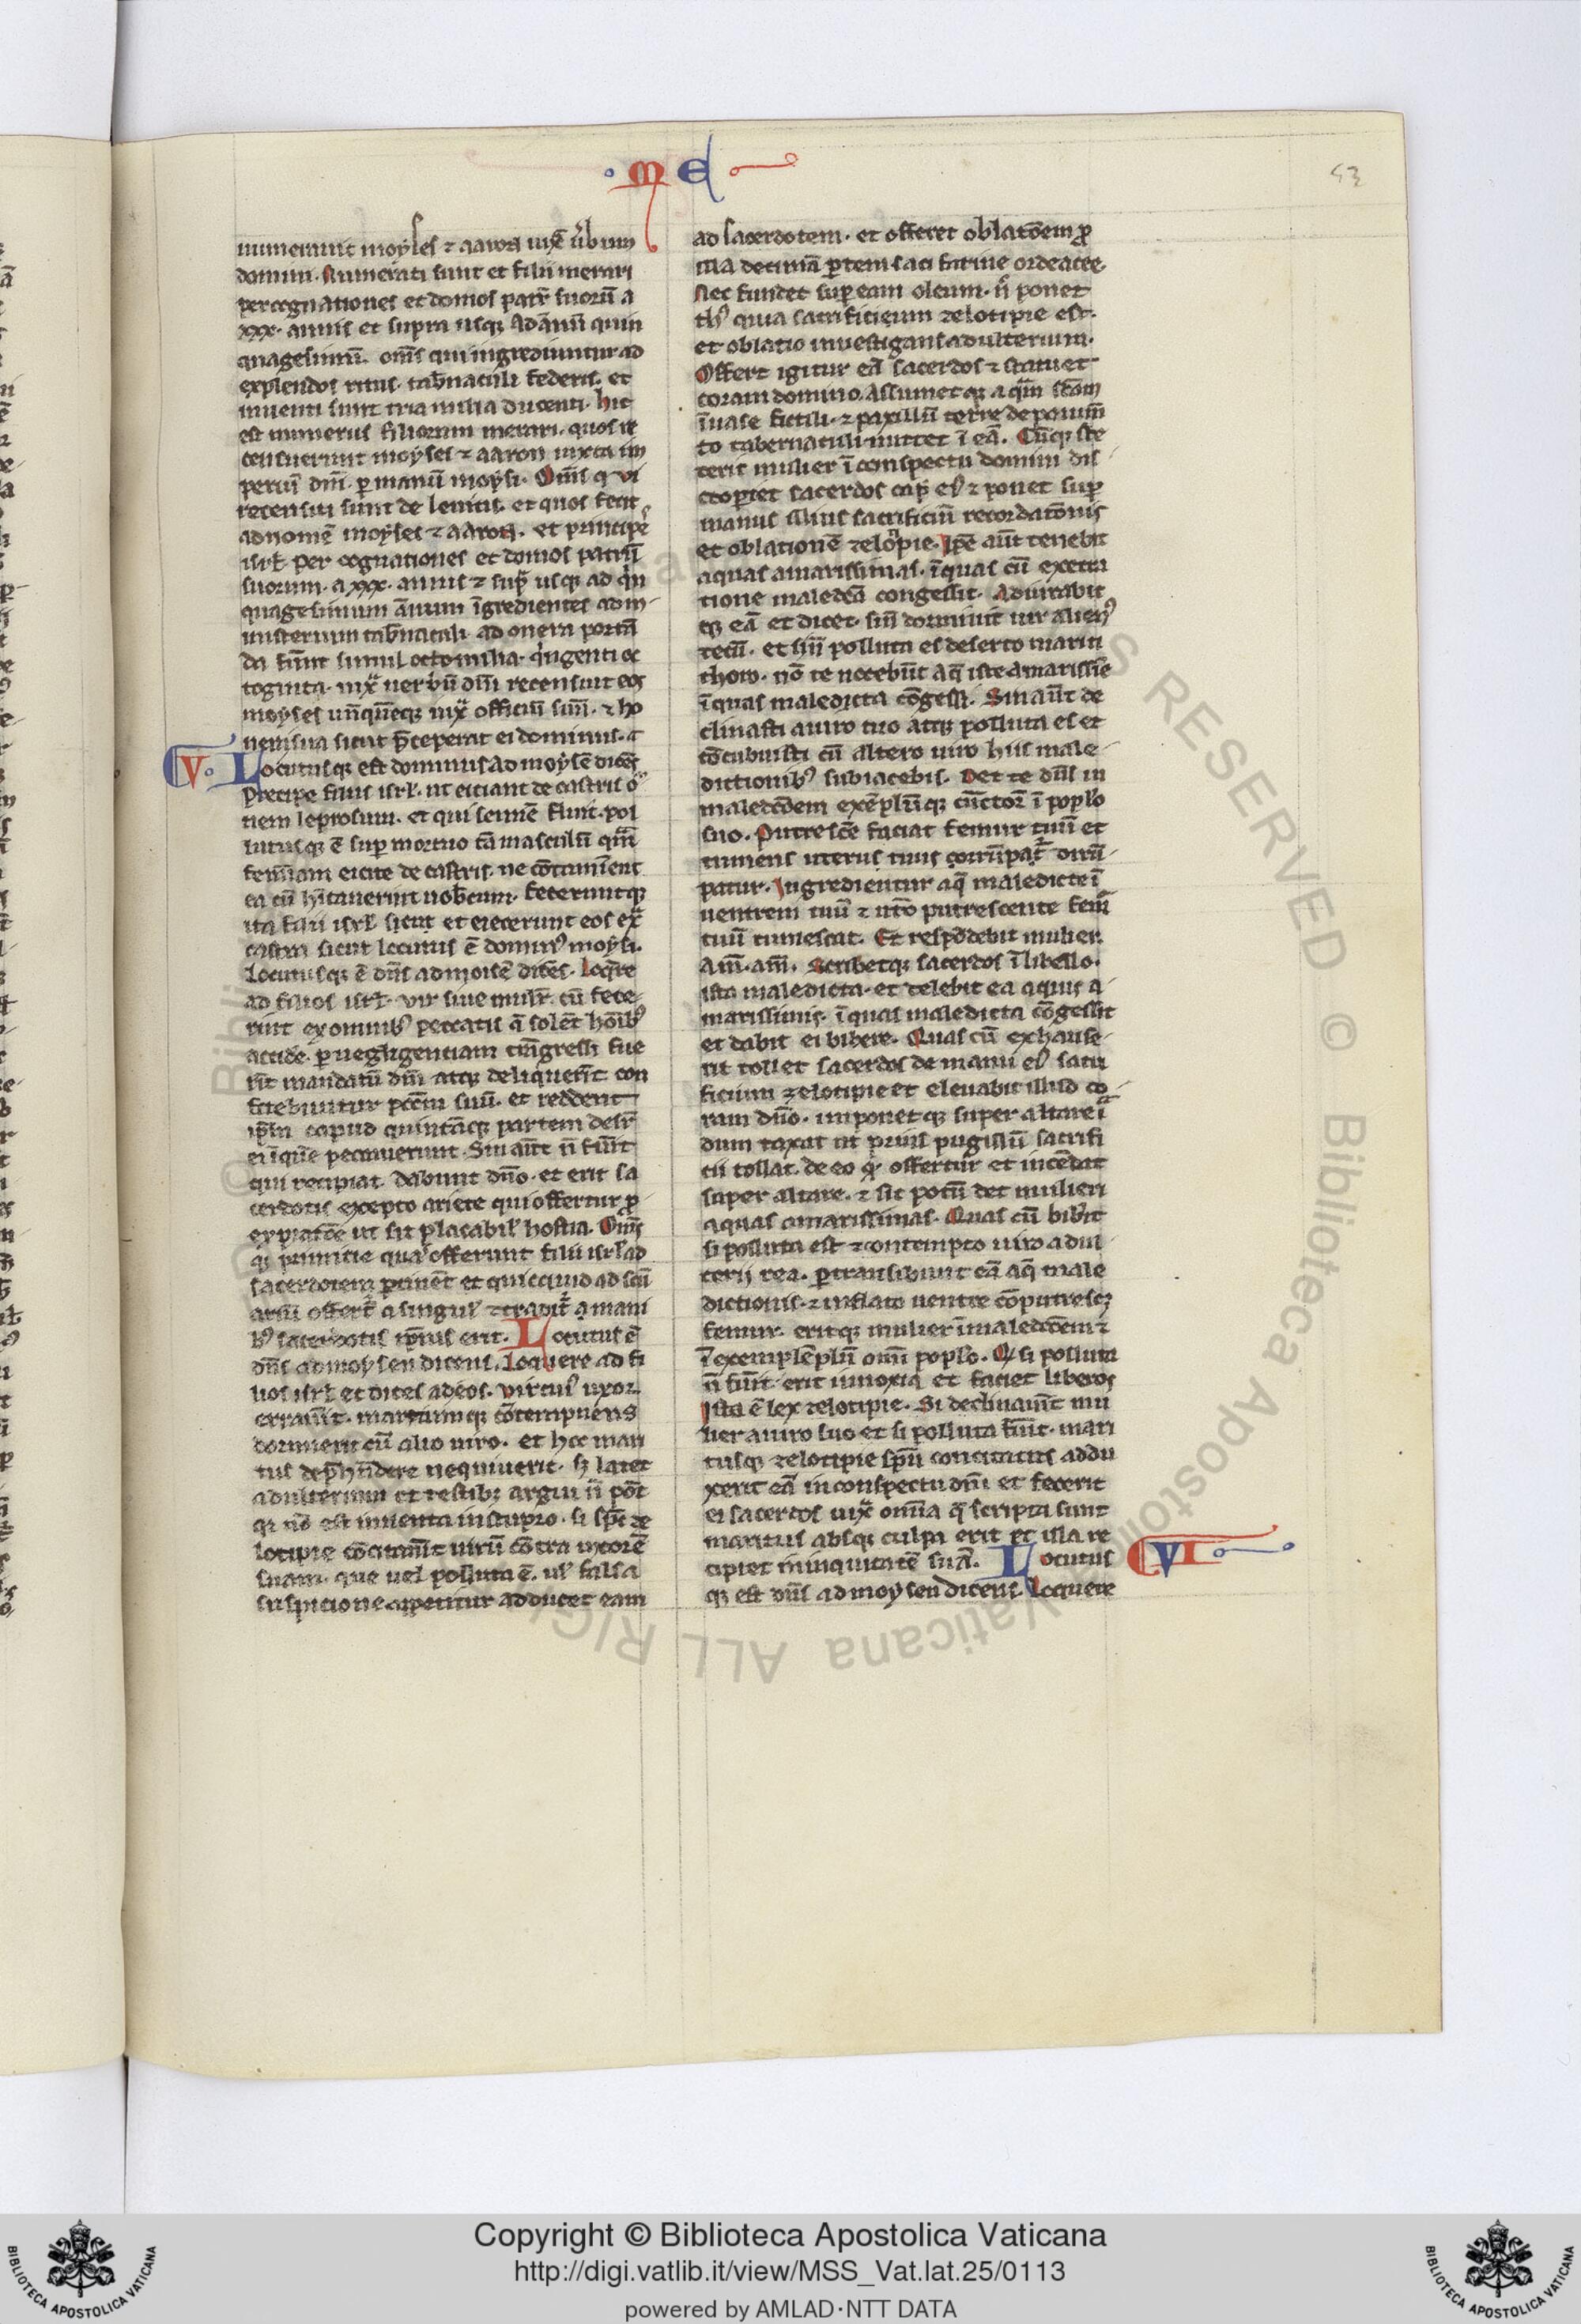 ME
53
numerauit moyses ⁊ aaron iuxͣ ûbum
domini. Numerati sunt et filii merari
per cognationes et domos patꝝ suoꝝ a
xxx. annis et supra usqꝫ ad ānū quin
quagesimū. om̄s qui ingrediuntur ad
explendos ritus. tab̄naculi federis. et
inuenti sunt tria milia ducenti. hic
est numerus filiorum merari. quos re
censuerunt moyses ⁊ aaron iuxta im
periū dn̄i. ꝑ manū moysi. Om̄s q̇ vi
recensiti sunt de leuitis. et quos fecit
ad nomē moyses ⁊ aaron. et principeˢ
isrl̄. per cognationes et domos patrū
suorum. a xxx. annis ⁊ supͣ usqꝫ ad q̇n
quagesimum ānum īgredientes ad m
nisterium tab̄naculi. ad onera portā
da fūnt simul octo milia. q̇ngenti oc
toginta. iuxͣ uerbū dn̄i recensuit eos
moyses un̄qūeqꝫ iuxͣ officiū suū. ⁊ ho
nera sua sicut p̄ceperat ei dominus.
V Locutusqꝫ est dominus ad moysē dicēs
precipe filiis isrl̄. ut eiciant de castris oͫ
nem leprosum. et qui semīe fluit. pol
lutusqꝫ ē suꝑ mortuo tā masculū qͣm
femīam eicite de castris. ne cōtamīent
ea cū hītauerint uob̄cum. feceruntqꝫ
ita filii isrl̄ sicut et eiecerunt eos exͣ
castra sicut locutus ē dominꝰ moysi.
Locutusqꝫ ē dn̄s ad moisē dicēs. loq̄re
ad filios isrl̄. vir siue mulr̄. cū fece
rint ex omnibꝰ peccatis q̄ solēt hoībꝰ
accidē. ꝑ negligentiam trͣngressi fue
rīt mandatū dn̄i atqꝫ deliquerīt con
fitebuntur pctm̄ suū. et reddent
ip̄m capud quintāqꝫ partem desr̄
ei īquē peccauerunt. Sin aūt n̄ fuīt
qui recipiat. dabunt dn̄o. et erit sa
cerdotis excepto ariete qui offertur ꝓ
expiatōe ut sit placabilꝭ hostia. Om̄s
qꝫ primitie quaˢ offerunt filii isrl̄ ad
sacerdotem ꝑtinēt et quicquid ad scū
ariū offert᷑ a singulꝭ ⁊ tradit᷑ a mani
bꝰ sacerdotis ip̄ius erit. Locutus ē
dn̄s ad moysen dicens. loquere ad fi
lios isrl̄ et dices ad eos. vir cuiꝰ uxor
errauīt. maritumqꝫ cōtempnens
dormierit cū alio uiro. et hoc mari
tus dep̄hēndere nequiuerit. sꝫ latet
adulterium et testibꝫ argui n̄ pōt
qꝛ nō est inuenta in stupro. si sp̄c ze
lotipie cōcitauīt uirū cōtra uxorē
suam. que uel polluta ē. ul̓ falsa
suspicione appetitur adducet eam
ad sacerdotem. et offeret oblatōem ꝓ
illa decimā ꝑtem sati farine ordeacee.
Nec fundet suꝑ eam oleum. n̄ ponet
thꝰ quia sacrificium zelotipie est.
et oblatio inuestigans adulterium.
Offert igitur eā sacerdos ⁊ statuet
coram domino. Assumetqꝫ aqͣm sc̄am
ī uase fictili. ⁊ paxillū terre de pauim̄
to tabernaculi mittet ī eā. Cūqꝫ ste
terit mulier ī conspectu domini dis
cooperiet sacerdos cap̄ eiꝰ ⁊ ponet suꝑ
manus illius sacrificiū recordatōnis
et oblationē zelotipie. Ip̄e aūt tenebit
aquas amarissimas. ī quas cū execra
tione maledc̄a congessit. Adiurabit
qꝫ eā et dicet. si n̄ dormiuit uir alienꝰ
tecū. et si n̄ polluta es deserto mariti
thoro. nō te nocebūt aq̄ iste amarissīe
ī quas maledicta cōgessi. Sin aūt de
clinasti a uiro tuo atqꝫ polluta es et
cōcubuisti cū altero uiro hiis male
dictionibꝰ subiacebis. Det te dn̄s in
maledc̄oem exēplūqꝫ cūctoꝝ ī pop̄lo
suo. Putrescē faciat femur tuū et
tumens uterus tuus corrūpat᷑ dirū
patur. Ingredientur aq̄ maledicte ī
uentrem tuū ⁊ utͦo putrescente femͬ
tuū tumescat. Et respōdebit mulier.
Am̄. am̄. Scribetqꝫ sacerdos ī libello.
ista maledicta. et delebit ea aquis a
marissimis. ī quas maledicta cōgessit
et dabit ei bibere. Quas cū exhause
rit tollet sacerdos de manu eiꝰ sacri
ficium zelotipie et eleuabit illud co
ram dn̄o. imponetqꝫ super altare ī
dum taxat ut prius pugillū sacrifi
cii tollat. de eo qͩ offertur et incēdat
super altare. ⁊ sic potū det mulieri
aquas amarissimas. Quas cū bib̄it
si polluta est ⁊ contempto uiro adul
terij rea. ꝑtransibunt eā aq̄ male
dictionis. ⁊ inflato uentre cōputrescꝫ
femur. eritqꝫ mulier ī maledc̄oem ⁊
ī exemplēplū omī pop̄lo. Qͩ si polluta
n̄ fuīt. erit innoxia et faciet liberos
Ista ē lex zelotipie. Si declinauīt mu
lier a uiro suo et si polluta fuīt. mari
tusqꝫ zelotipie sp̄u concitatus addu
xerit eā in conspectu dn̄i et fecerit
ei sacerdos iuxͣ omīa q̄ scripta sunt
maritus absqꝫ culpa erit et illa re
cipiet iniquitatē suā. Locutus VI
qꝫ est dn̄s ad moysen dicens. Loquere
Copyright © Biblioteca Apostolica Vaticana
http://digi.vatlib.it/view/MSS_Vat.lat.25/0113
powered by AMLAD·NTT DATA
BIBLIOTECA APOSTOLICA VATICANA
BIBLIOTECA APOSTOLICA VATICANA